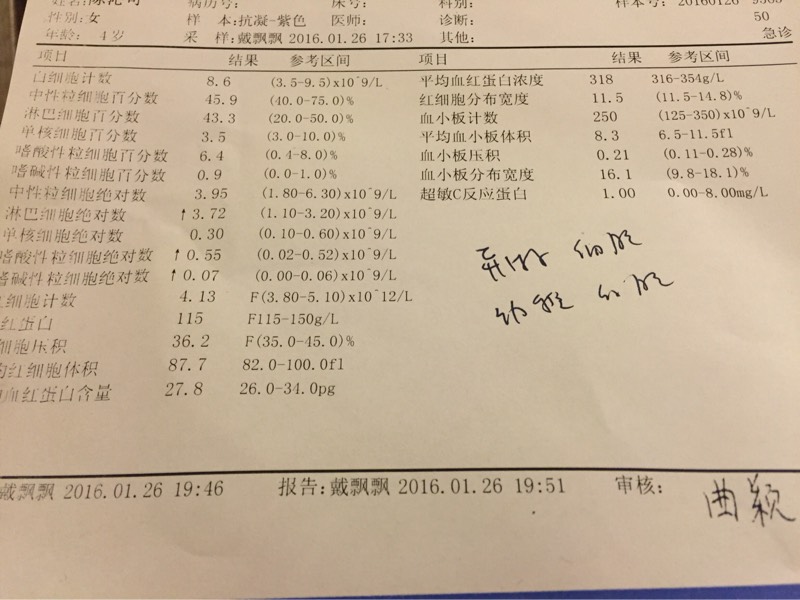 病历号: 床号: 科别: 样本号: 20160126
性别:女 样 本:抗凝-紫色 医师: 诊断: 50
年龄: 4 岁 采 样:戴飘飘 2016.01.26 17:33 其他: 急诊
项目 结果 参考区间 项目 结果 参考区间
白细胞计数 8.6 (3.5-9.5)x10^9/L 平均血红蛋白浓度 318 316-354g/L
中性粒细胞百分数 45.9 (40.0-75.0)% 红细胞分布宽度 11.5 (11.5-14.8)%
淋巴细胞百分数 43.3 (20.0-50.0)% 血小板计数 250 (125-350)x10^9/L
单核细胞百分数 3.5 (3.0-10.0)% 平均血小板体积 8.3 6.5-11.5fl
嗜酸性粒细胞百分数 6.4 (0.4-8.0)% 血小板压积 0.21 (0.11-0.28)%
嗜碱性粒细胞百分数 0.9 (0.0-1.0)% 血小板分布宽度 16.1 (9.8-18.1)%
中性粒细胞绝对数 3.95 (1.80-6.30)x10^9/L 超敏C反应蛋白 1.00 0.00-8.00mg/L
淋巴细胞绝对数 ↑3.72 (1.10-3.20)x10^9/L
单核细胞绝对数 0.30 (0.10-0.60)x10^9/L
嗜酸性粒细胞绝对数 ↑0.55 (0.02-0.52)x10^9/L
嗜碱性粒细胞绝对数 ↑0.07 (0.00-0.06)x10^9/L
细胞计数 4.13 F(3.80-5.10)x10^12/L
红蛋白 115 F115-150g/L
细胞压积 36.2 F(35.0-45.0)%
均红细胞体积 87.7 82.0-100.0fl
血红蛋白含量 27.8 26.0-34.0pg
戴飘飘 2016.01.26 19:46 报告:戴飘飘 2016.01.26 19:51 审核: 曲颖